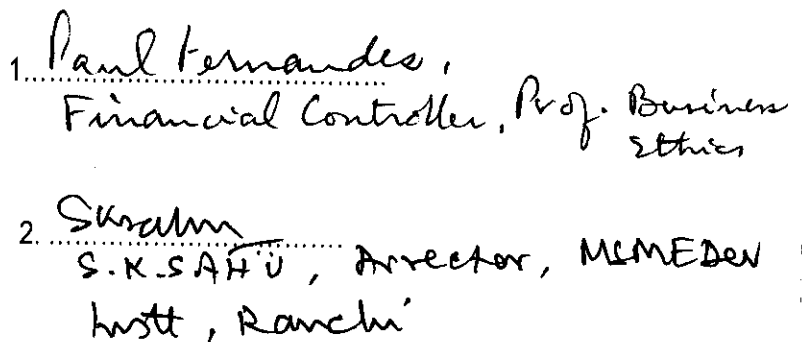 1. Paul Fernandes,
Financial Controller, Prof. Business
Ethics
2. SKSahu
S.K.SAHU, Director, MSMEDev
Instt, Ranchi